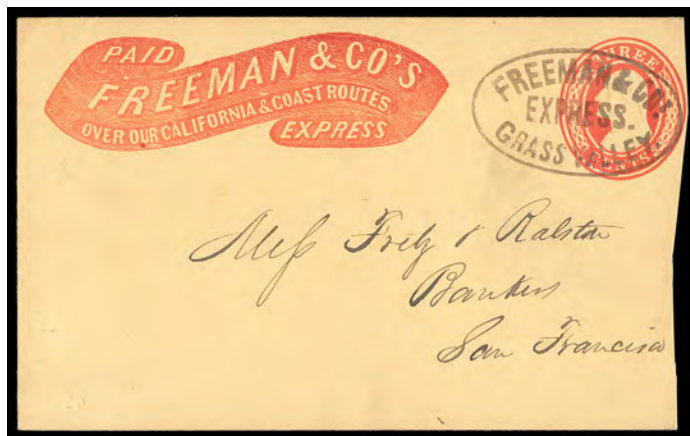 PAID
FREEMAN & CO'S
OVER OUR CALIFORNIA & COAST ROUTES
EXPRESS
THREE
CENTS
FREEMAN & CO'S
EXPRESS.
GRASS VALLEY.
Mess Fretz & Ralston
Bankers
San Francisco